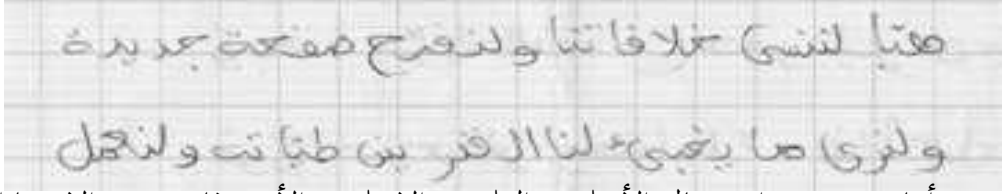 هيا لننسى خلافاتنا ولنفتح صفحة جديدة
ولنرى ما يخبىء لنا القدر بين طيا ته ولنعمل